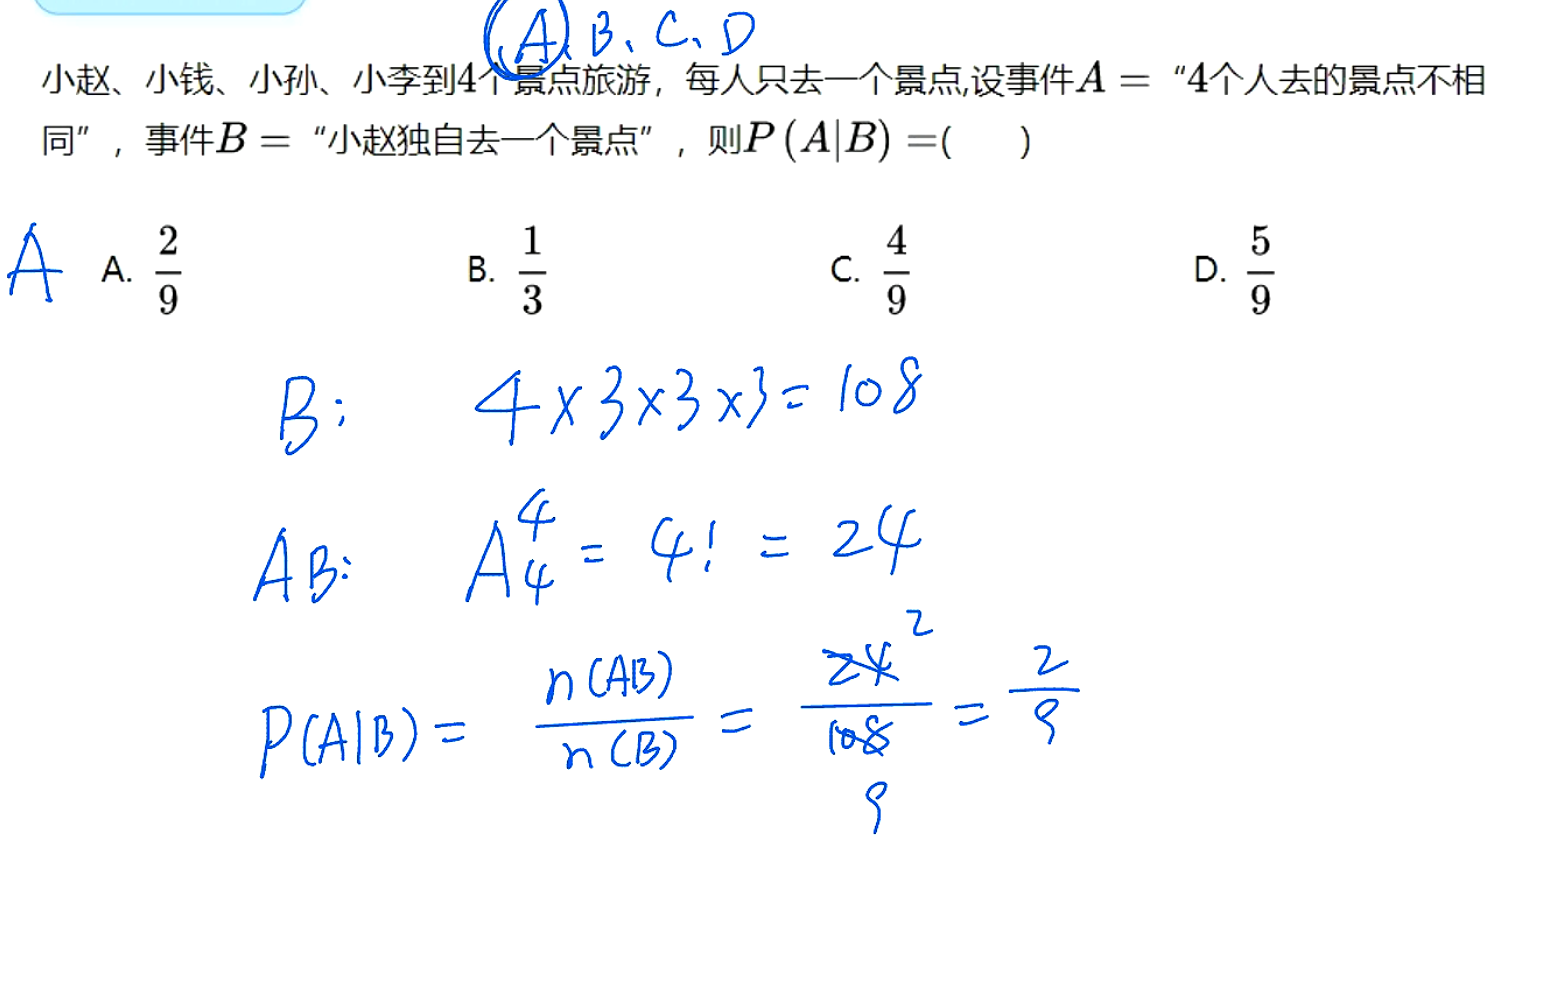 A、B、C、D
小赵、小钱、小孙、小李到4个景点旅游，每人只去一个景点,设事件A = “4个人去的景点不相
同”，事件B = “小赵独自去一个景点”，则P(A|B) =(  )
A A. 2/9 B. 1/3 C. 4/9 D. 5/9
B: 4×3×3×3=108
AB: A₄⁴ = 4! = 24
P(A|B) = n(AB)/n(B) = 24/108 = 2/9
2
9